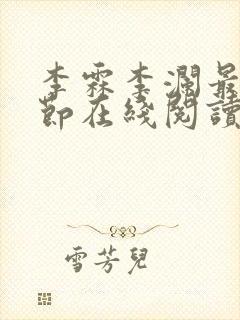 李霖李瀾最
節在綫閱讀
雪芳兒